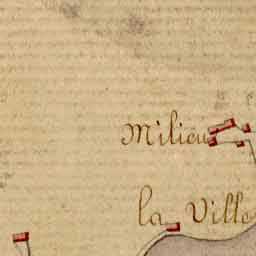 Milieu
la Ville